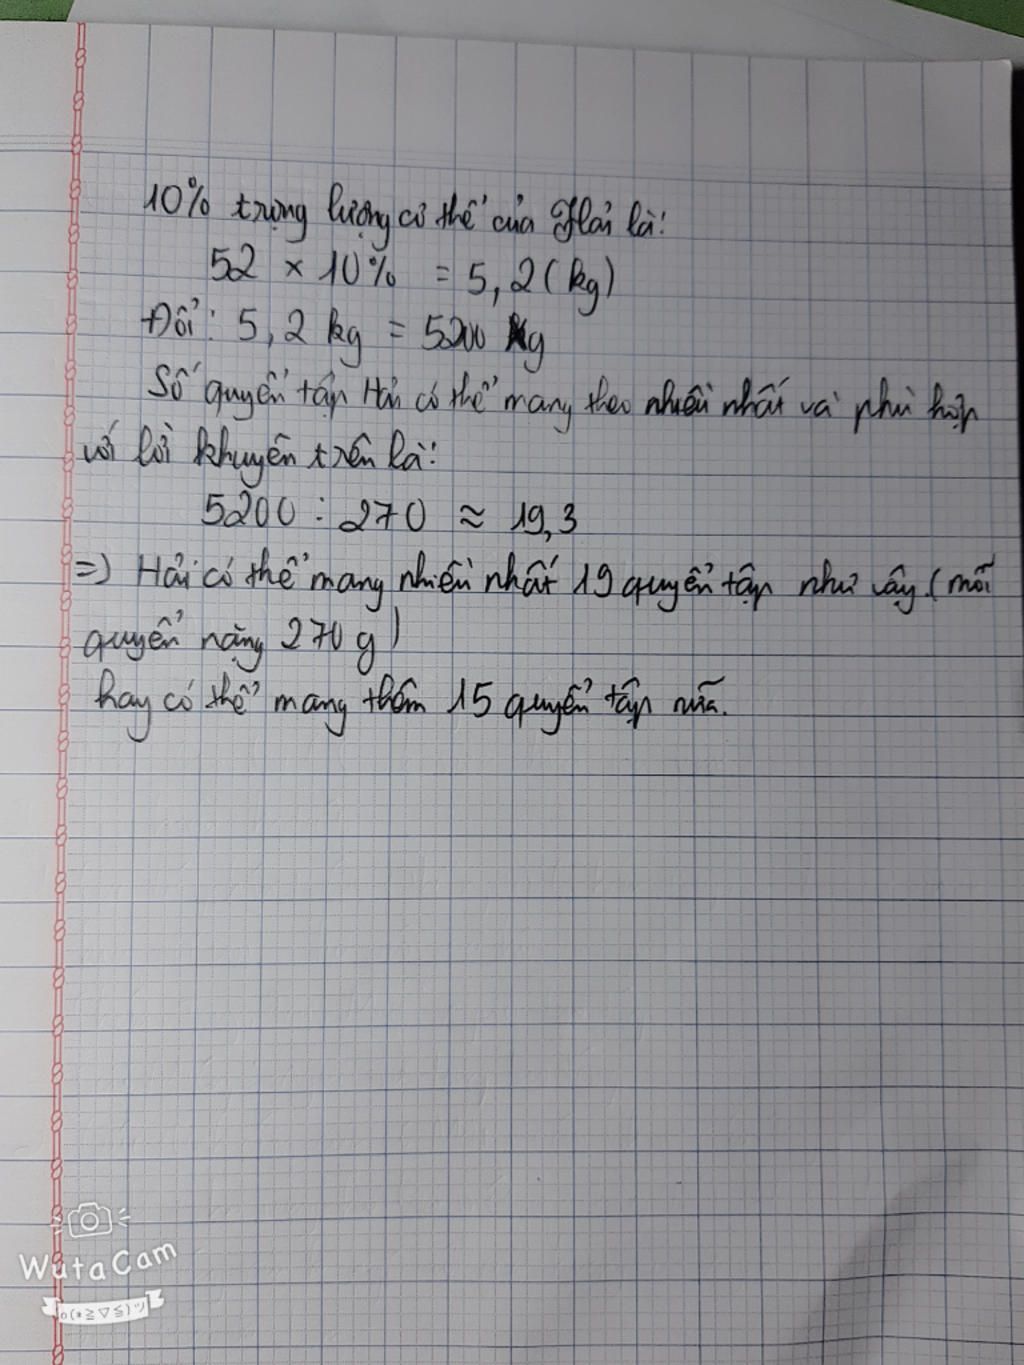 10% trọng lượng cơ thể của Hải là:
52 × 10% = 5,2 (kg)
Đổi: 5,2 kg = 5200 g
Số quyển tập Hải có thể mang theo nhiều nhất và phù hợp
với lời khuyên trên là:
5200 : 270 ≈ 19,3
=> Hải có thể mang nhiều nhất 19 quyển tập như vậy. (mỗi
quyển nặng 270 g)
hay có thể mang thêm 15 quyển tập nữa.
WutaCam
o(*≧▽≦)ツ